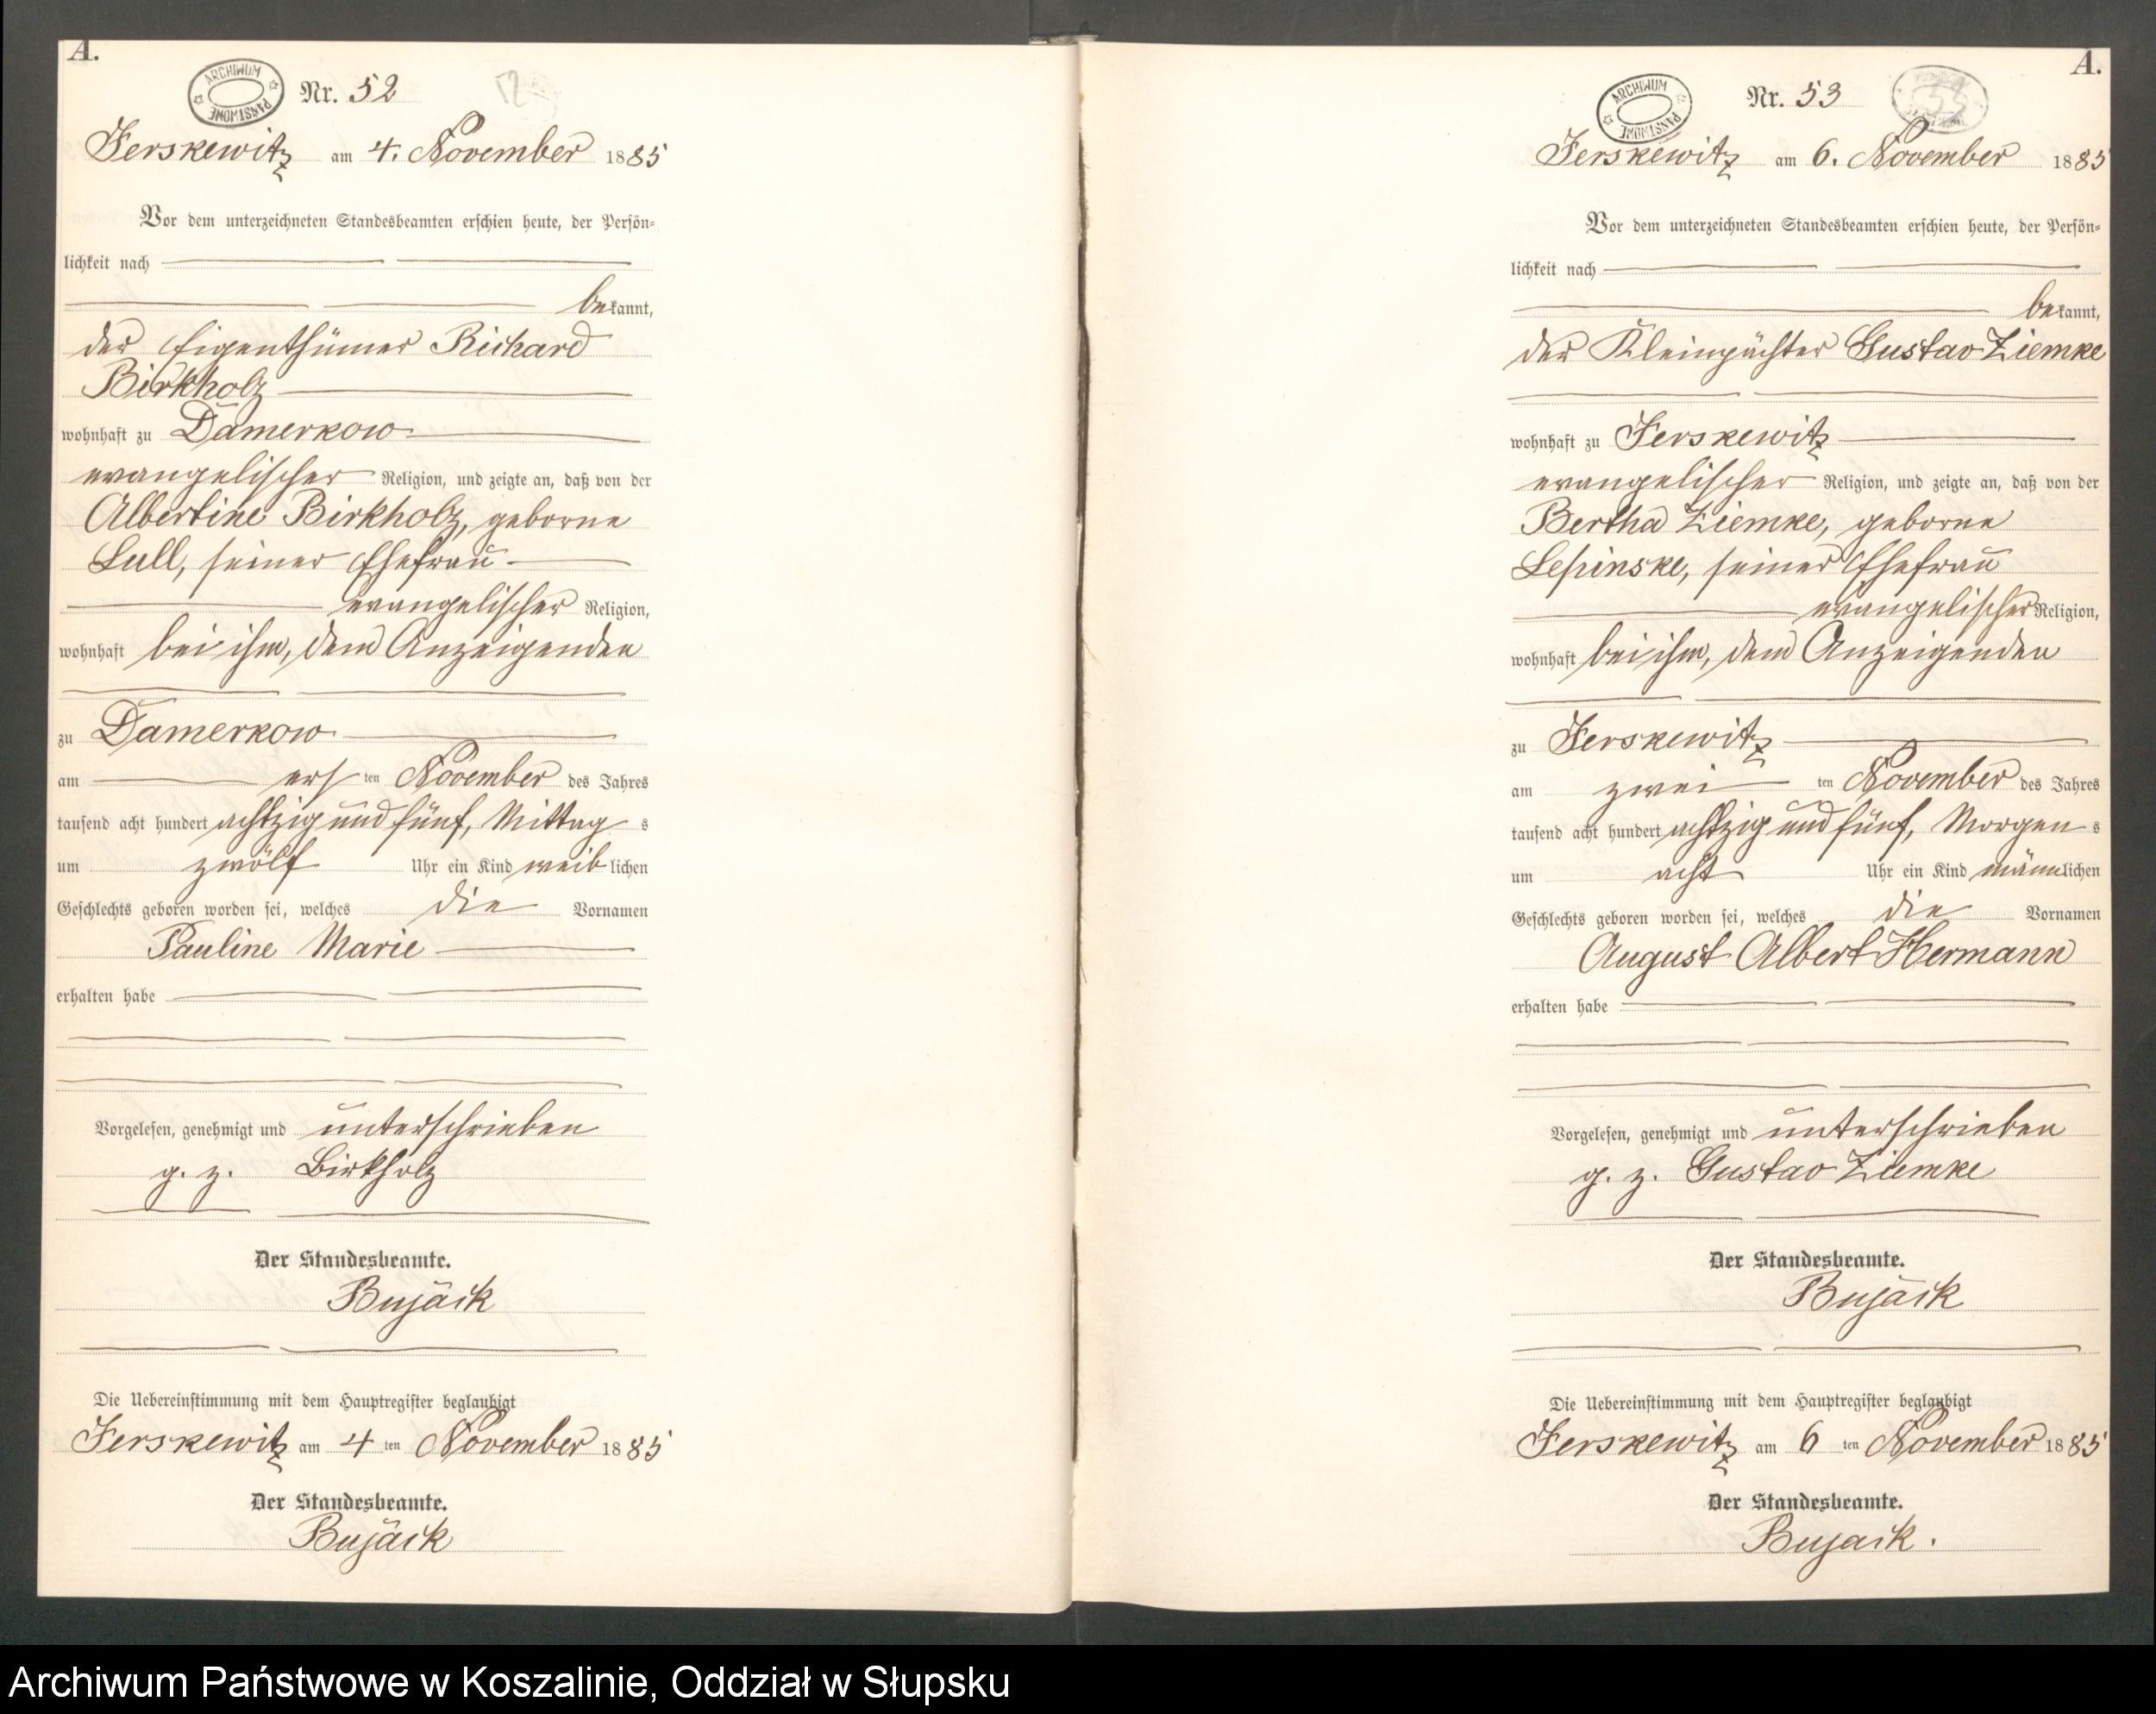 A.
ARCHIWUM PAŃSTWOWE
Nr. 52
52
Jerskewitz am 4. November 1885
Vor dem unterzeichneten Standesbeamten erschien heute, der Persön=
lichkeit nach
bekannt,
der Eigenthümer Richard
Birkholz
wohnhaft zu Damerkow
evangelischer Religion, und zeigte an, daß von der
Albertine Birkholz, geborne
Lull, seiner Ehefrau
evangelischer Religion,
wohnhaft bei ihm, dem Anzeigenden
zu Damerkow
am ersten November des Jahres
tausend acht hundert achtzig und fünf, Mittags
um zwölf Uhr ein Kind weiblichen
Geschlechts geboren worden sei, welches die Vornamen
Pauline Marie
erhalten habe
Vorgelesen, genehmigt und unterschrieben
g. z. Birkholz
Der Standesbeamte.
Bujack
Die Uebereinstimmung mit dem Hauptregister beglaubigt
Jerskewitz am 4 ten November 1885
Der Standesbeamte.
Bujack
A.
ARCHIWUM PAŃSTWOWE
Nr. 53
53
Jerskewitz am 6. November 1885
Vor dem unterzeichneten Standesbeamten erschien heute, der Persön=
lichkeit nach
bekannt,
der Kleinpächter Gustav Ziemke
wohnhaft zu Jerskewitz
evangelischer Religion, und zeigte an, daß von der
Bertha Ziemke, geborne
Lepinske, seiner Ehefrau
evangelischer Religion,
wohnhaft bei ihm, dem Anzeigenden
zu Jerskewitz
am zwei ten November des Jahres
tausend acht hundert achtzig und fünf, Morgens
um acht Uhr ein Kind männlichen
Geschlechts geboren worden sei, welches die Vornamen
August Albert Hermann
erhalten habe
Vorgelesen, genehmigt und unterschrieben
g. z. Gustav Ziemke
Der Standesbeamte.
Bujack
Die Uebereinstimmung mit dem Hauptregister beglaubigt
Jerskewitz am 6 ten November 1885
Der Standesbeamte.
Bujack.
Archiwum Państwowe w Koszalinie, Oddział w Słupsku